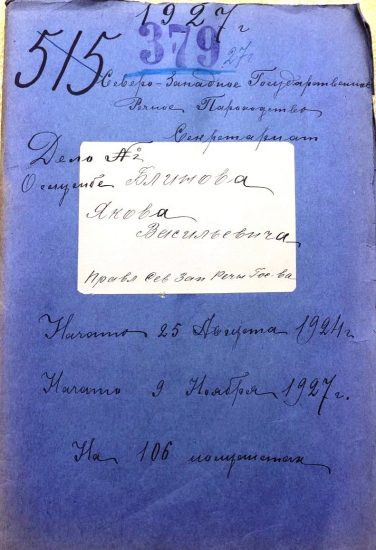 1927 г
515
379
27г.
Северо-Западное Государственное
Речное Пароходство
Секретариат
Дело №
О службе Блинова
Якова
Васильевича
Правл Сев Зап Речн Гос-ва
Начато 25 Августа 1924г.
Начато 9 Ноября 1927г.
На 106 полулистах